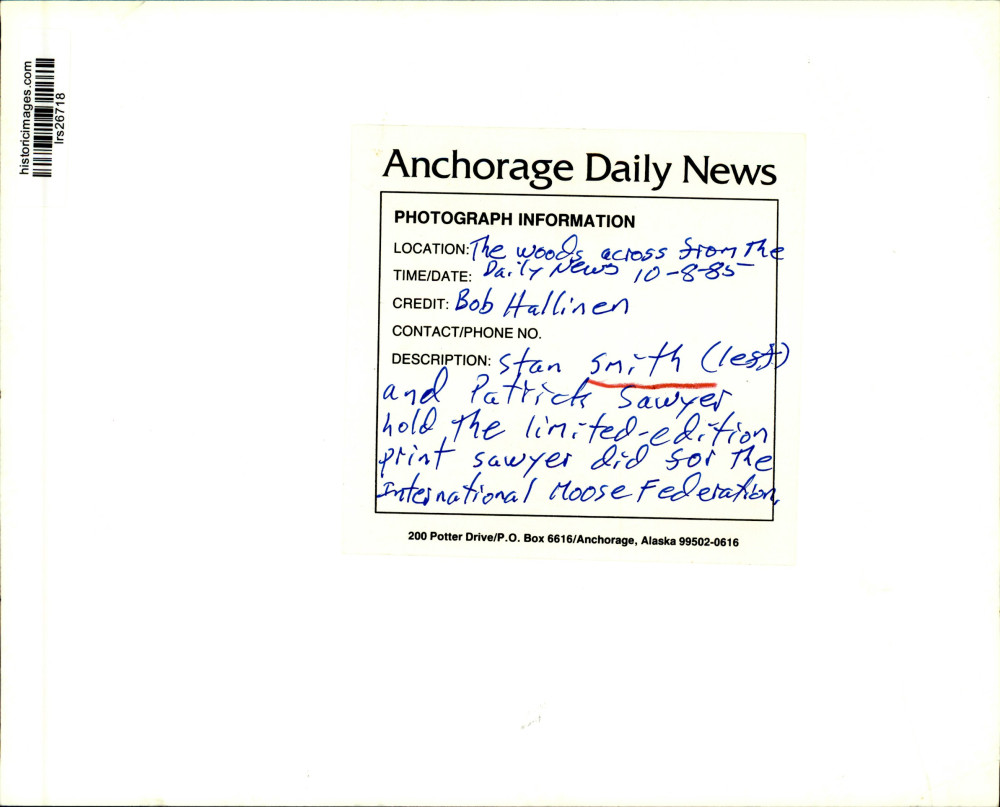 historicimages.com
lrs26718
Anchorage Daily News
PHOTOGRAPH INFORMATION
LOCATION: The woods across from the
TIME/DATE: Daily News 10-8-85
CREDIT: Bob Hallinen
CONTACT/PHONE NO.
DESCRIPTION: Stan Smith (left)
and Patrick Sawyer
hold the limited-edition
print sawyer did for the
International Moose Federation.
200 Potter Drive/P.O. Box 6616/Anchorage, Alaska 99502-0616